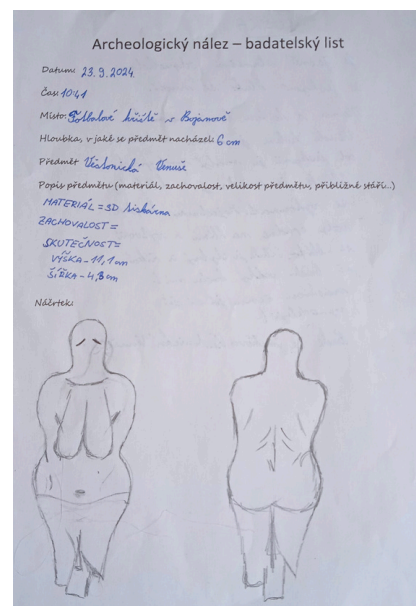 Archeologický nález – badatelský list
Datum: 23.9.2024
Čas: 10:41
Místo: Fotbalové hřiště v Bojanově
Hloubka, v jaké se předmět nacházel: 6 cm
Předmět Věstonická Venuše
Popis předmětu (materiál, zachovalost, velikost předmětu, přibližné stáří...)
MATERIÁL = 3D tiskárna
ZACHOVALOST =
SKUTEČNOST=
VÝŠKA - 11,1 cm
ŠÍŘKA - 4,3 cm
Náčrtek: